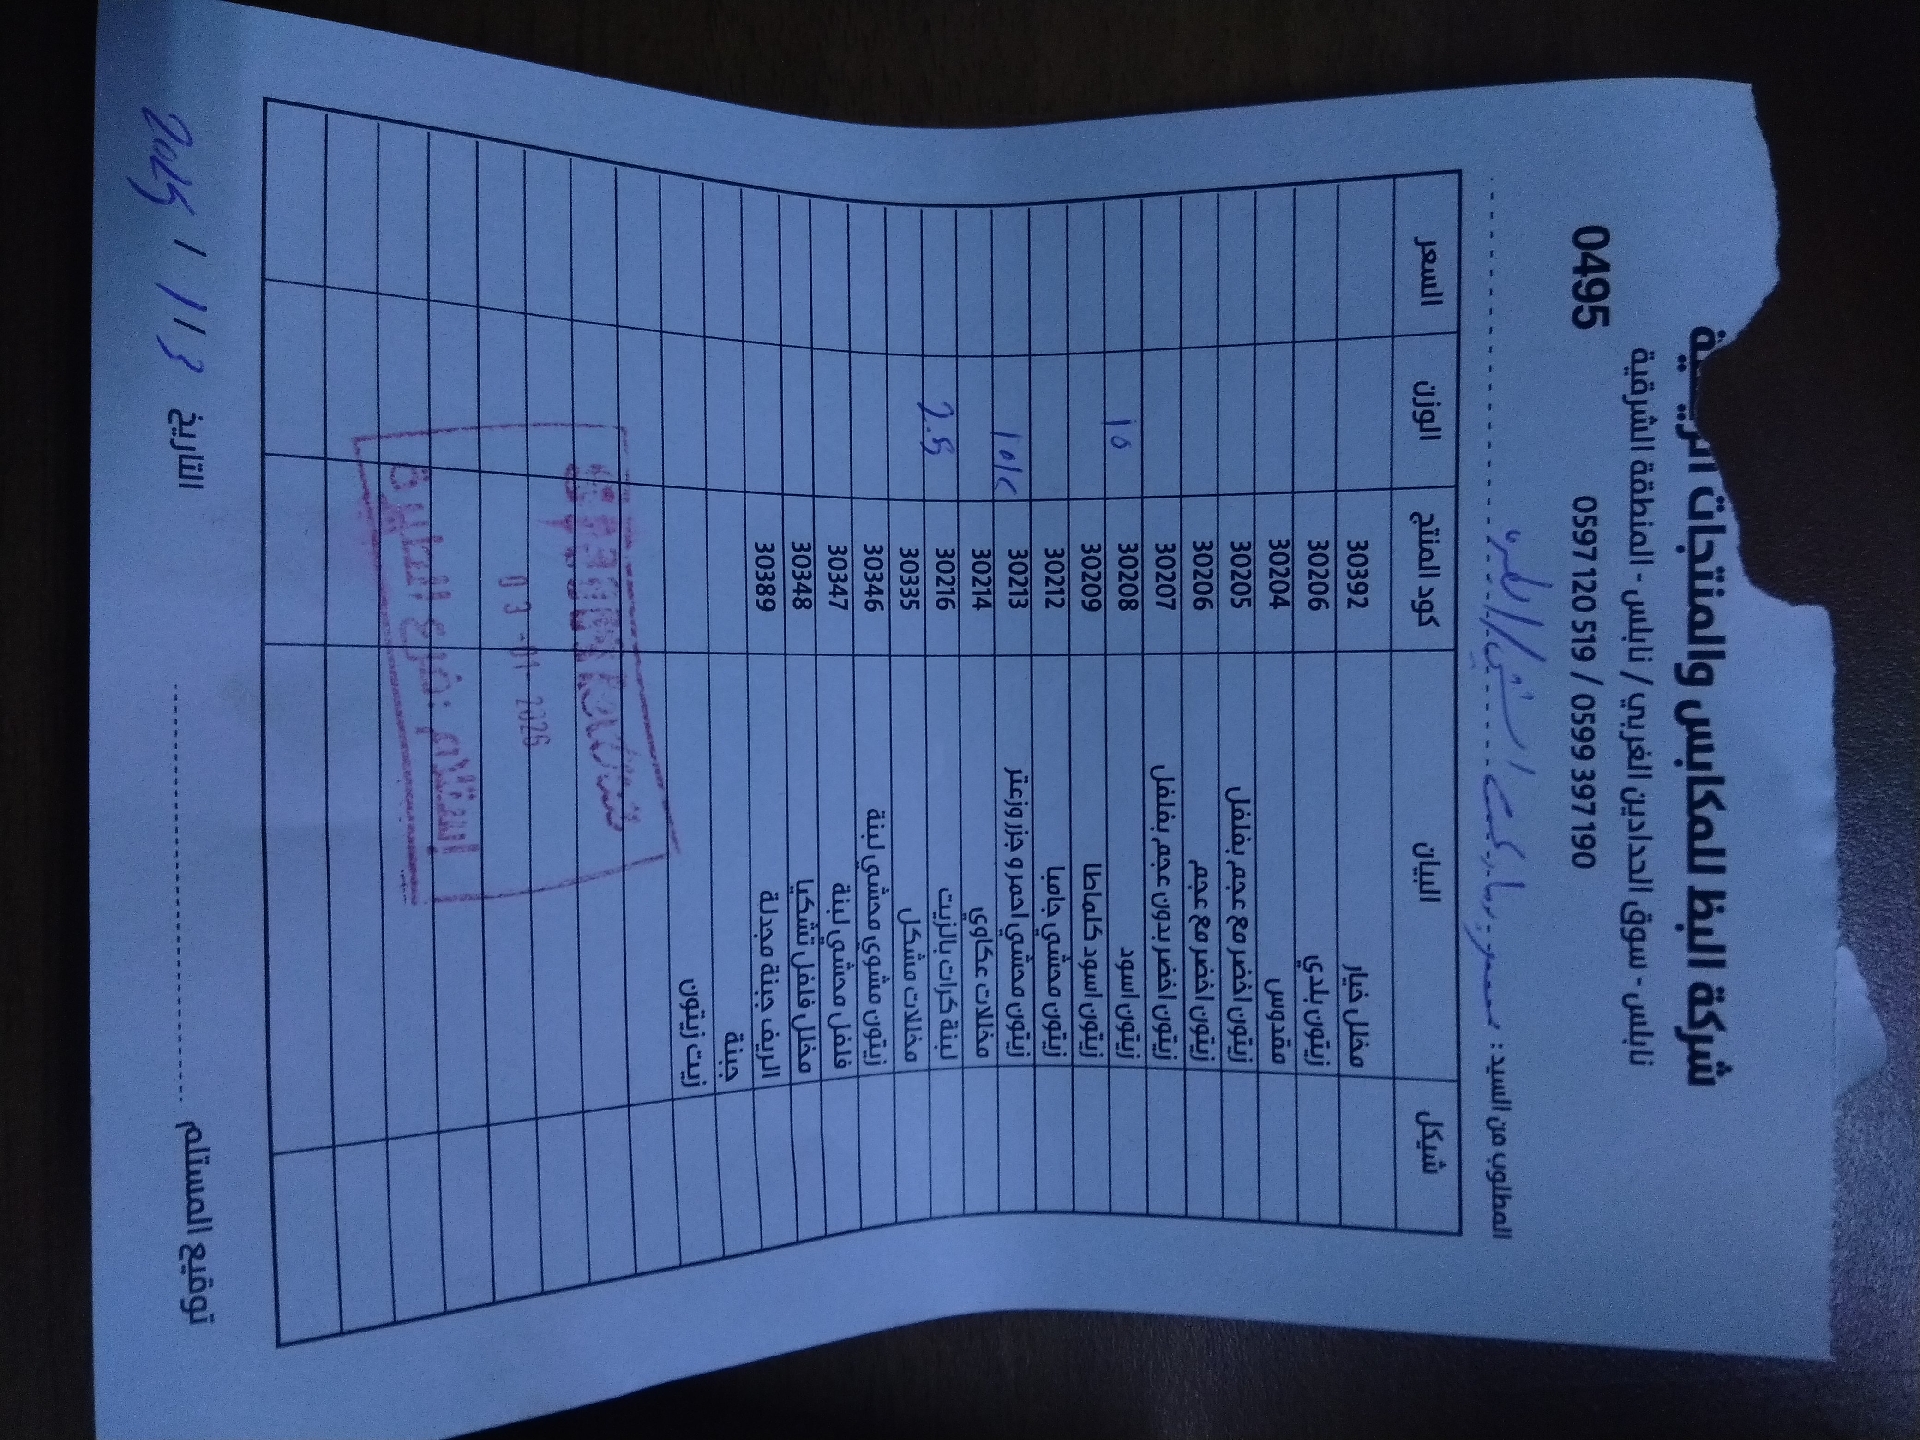 شركة البظ للمكابس والمنتجات
نابلس - سوق الحدادين الغربي / نابلس - المنطقة الشرقية
0495 0597 120 519 / 0599 397 190
المطلوب من السيد :
شيكل البيان كود المنتج الوزن السعر
مخلل خيار 30392
زيتون بلدي 30206
مقدوس 30204
زيتون اخضر مع عجم بفلفل 30205
زيتون اخضر مع عجم 30206
زيتون اخضر بدون عجم بفلفل 30207
زيتون اسود 30208
زيتون اسود كلماطا 30209
زيتون محشي جامبا 30212
زيتون محشي احمر و جزر وزعتر 30213
مخللات عكاوي 30214
لبنة كرات بالزيت 30216 2.5
مخللات مشكل 30335
زيتون مشوي محشي لبنة 30346
فلفل محشي لبنة 30347
مخلل فلفل تشكيا 30348
الريف جبنة مجدلة 30389
جبنة
زيت زيتون
03-01-2026
إستلام :فرع الطيرة
توقيع المستلم التاريخ